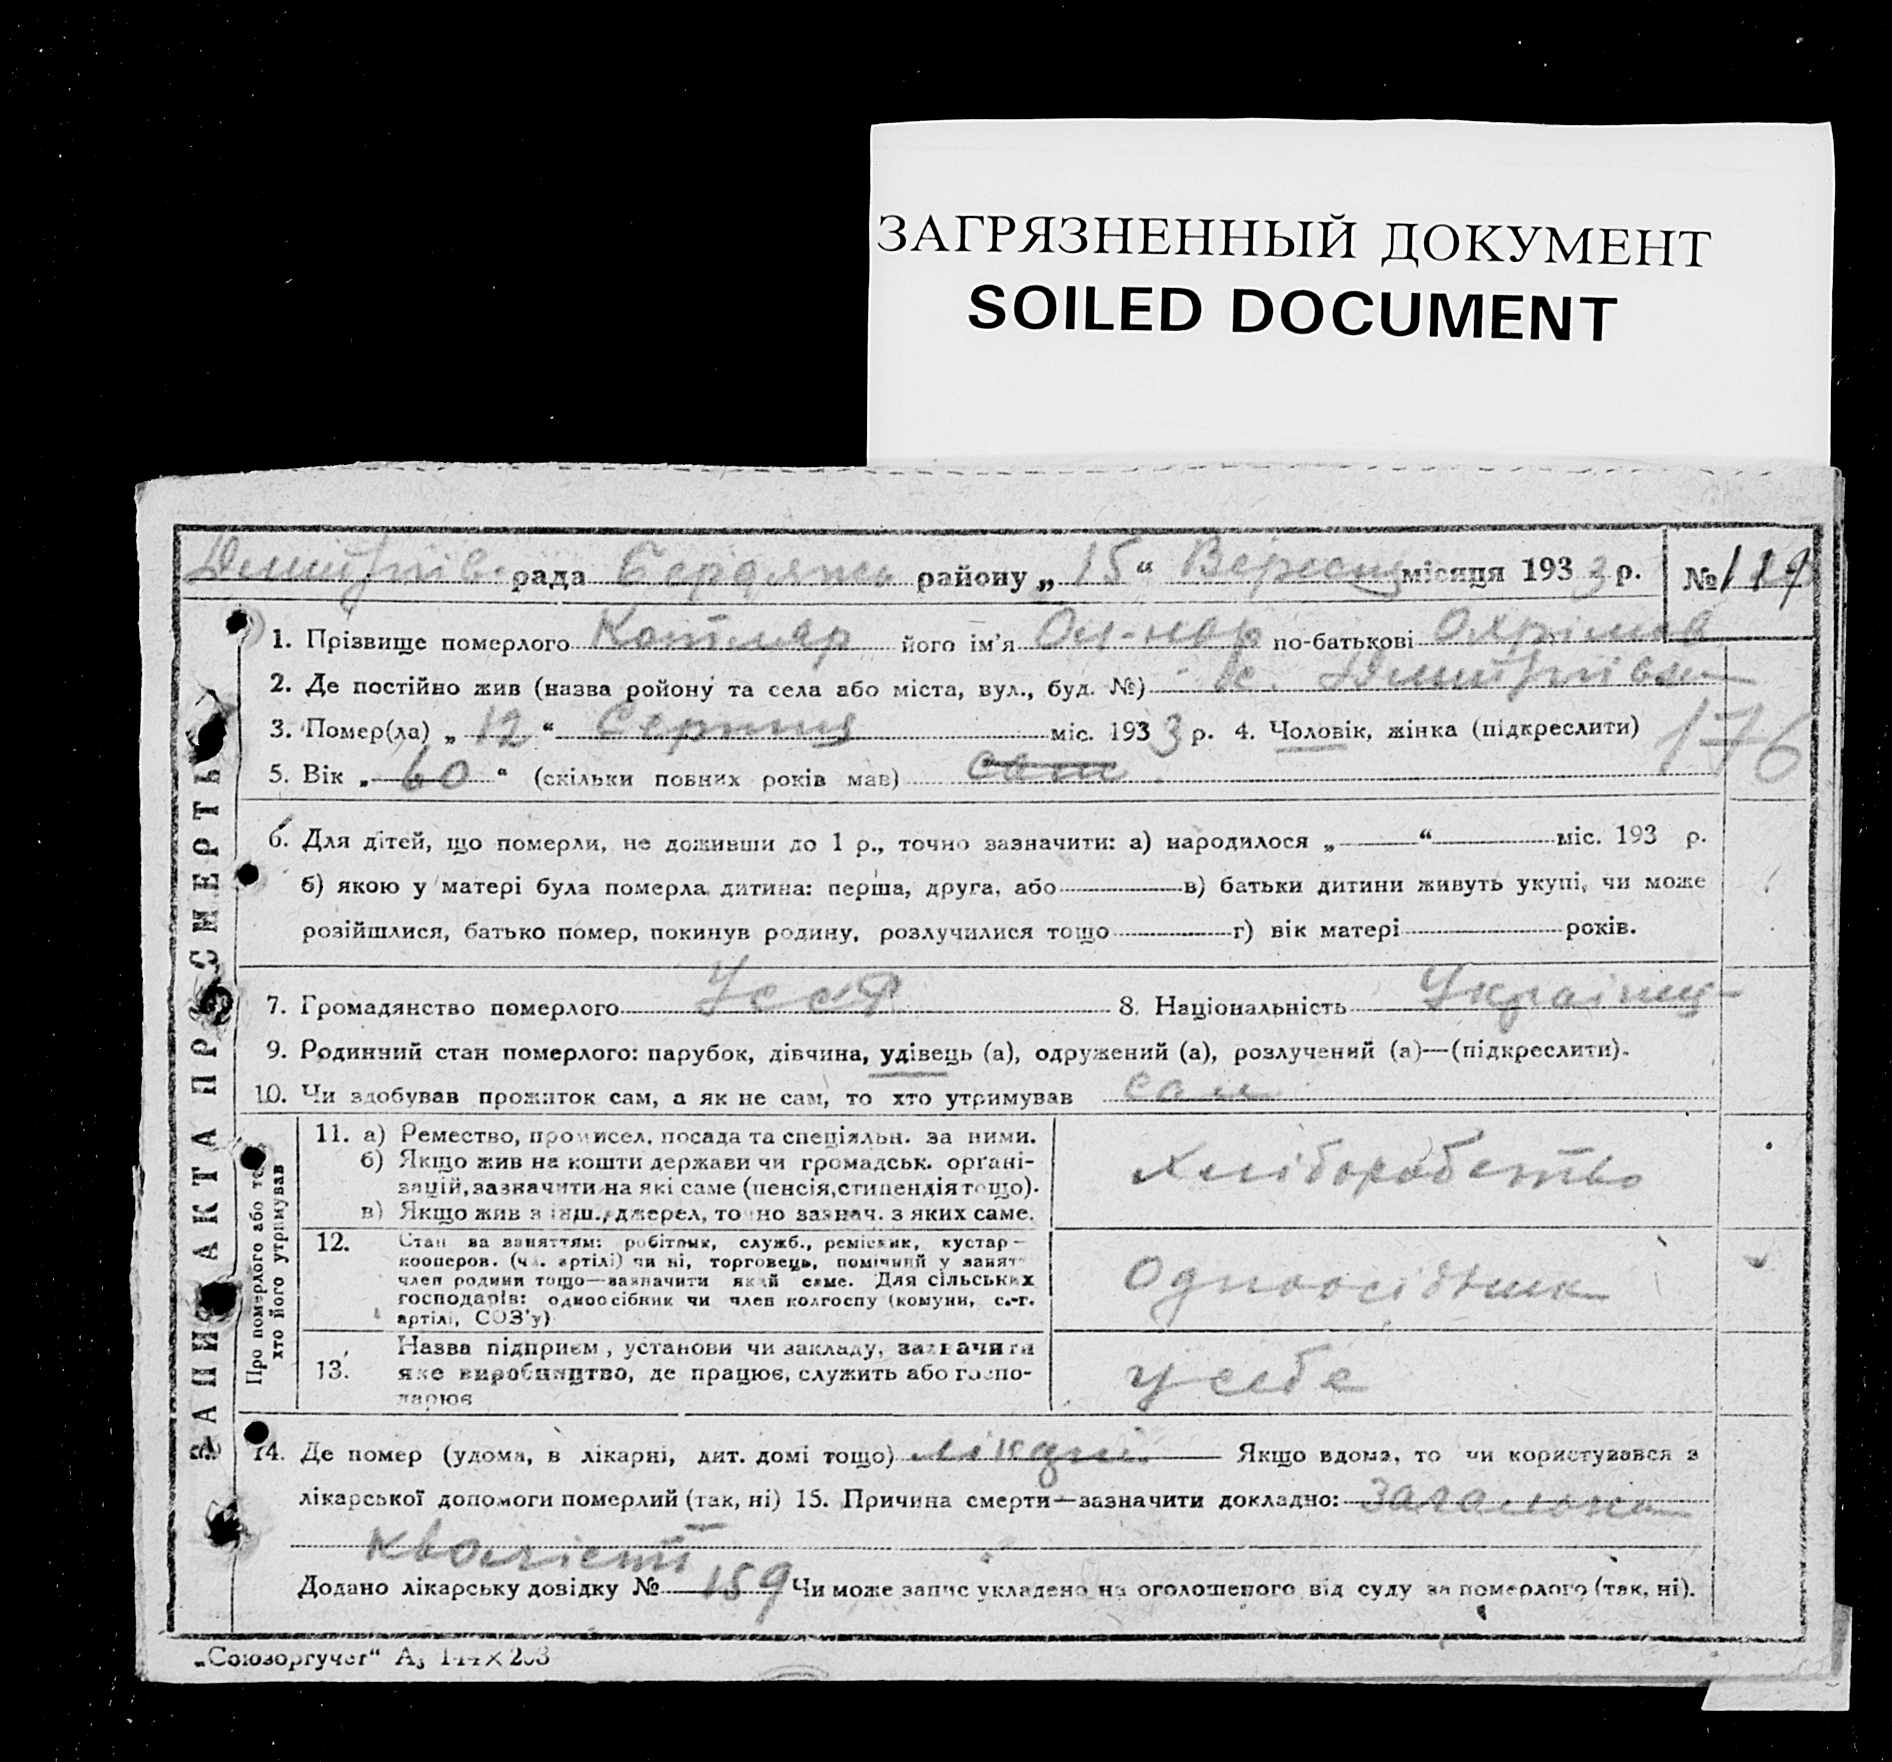 ЗАГРЯЗНЕННЫЙ ДОКУМЕНТ
SOILED DOCUMENT
Дмитрівс рада Бердянсь району „ 15 “ Вересня місяця 193 3 р. № 119
1. Прізвище померлого Котляр його ім'я по-батькові Охрімов
2. Де постійно жив (назва ройону та села або міста, вул., буд. №) с. Дмитрівка
3. Помер(ла) „ 12 “ Серпня міс. 193 3 р. 4. Чоловік, жінка (підкреслити)
176
5. Вік „ 60 “ (скільки повних років мав) сам
6. Для дітей, що померли, не доживши до 1 р., точно зазначити: а) народилося „ “ міс. 193 р.
б) якою у матері була померла дитина: перша, друга, або в) батьки дитини живуть укупі, чи може
розійшлися, батько помер, покинув родину, розлучилися тощо г) вік матері років.
7. Громадянство померлого УССР 8. Національність Українец
9. Родинний стан померлого: парубок, дівчина, удівець (а), одружений (а), розлучений (а)—(підкреслити).
10. Чи здобував прожиток сам, а як не сам, то хто утримував сам
11. а) Ремество, промисел, посада та спеціяльн. за ними.
б) Якщо жив на кошти держави чи громадськ. органі-
зацій, зазначити на які саме (пенсія, стипендія тощо).
в) Якщо жив з інш. джерел, точно зазнач. з яких саме.
Хліборобство
12. Стан за заняттям: робітник, служб., ремісник, кустар—
кооперов. (чл. артілі) чи ні, торговець, помічний у занят
член родини тощо—зазначити який саме. Для сільських
господарів: одноосібник чи член колгоспу (комуни, с.-г.
артілі, СОЗ'у)
Одноосібник
13. Назва підприєм, установи чи закладу, зазначити
яке виробництво, де працює, служить або госпо-
дарює
у себе
14. Де помер (удома, в лікарні, дит. домі тощо) лікарні Якщо вдома, то чи користувався з
лікарської допомоги померлий (так, ні) 15. Причина смерти—зазначити докладно: Загальна
кволість
Додано лікарську довідку № 159 Чи може запис укладено на оголошеного від суду за померлого (так, ні).
„Союзоргучет“ А5 144×203
ЗАПИС АКТА ПРО СМЕРТЬ
Про померлого або того,
хто його утримував